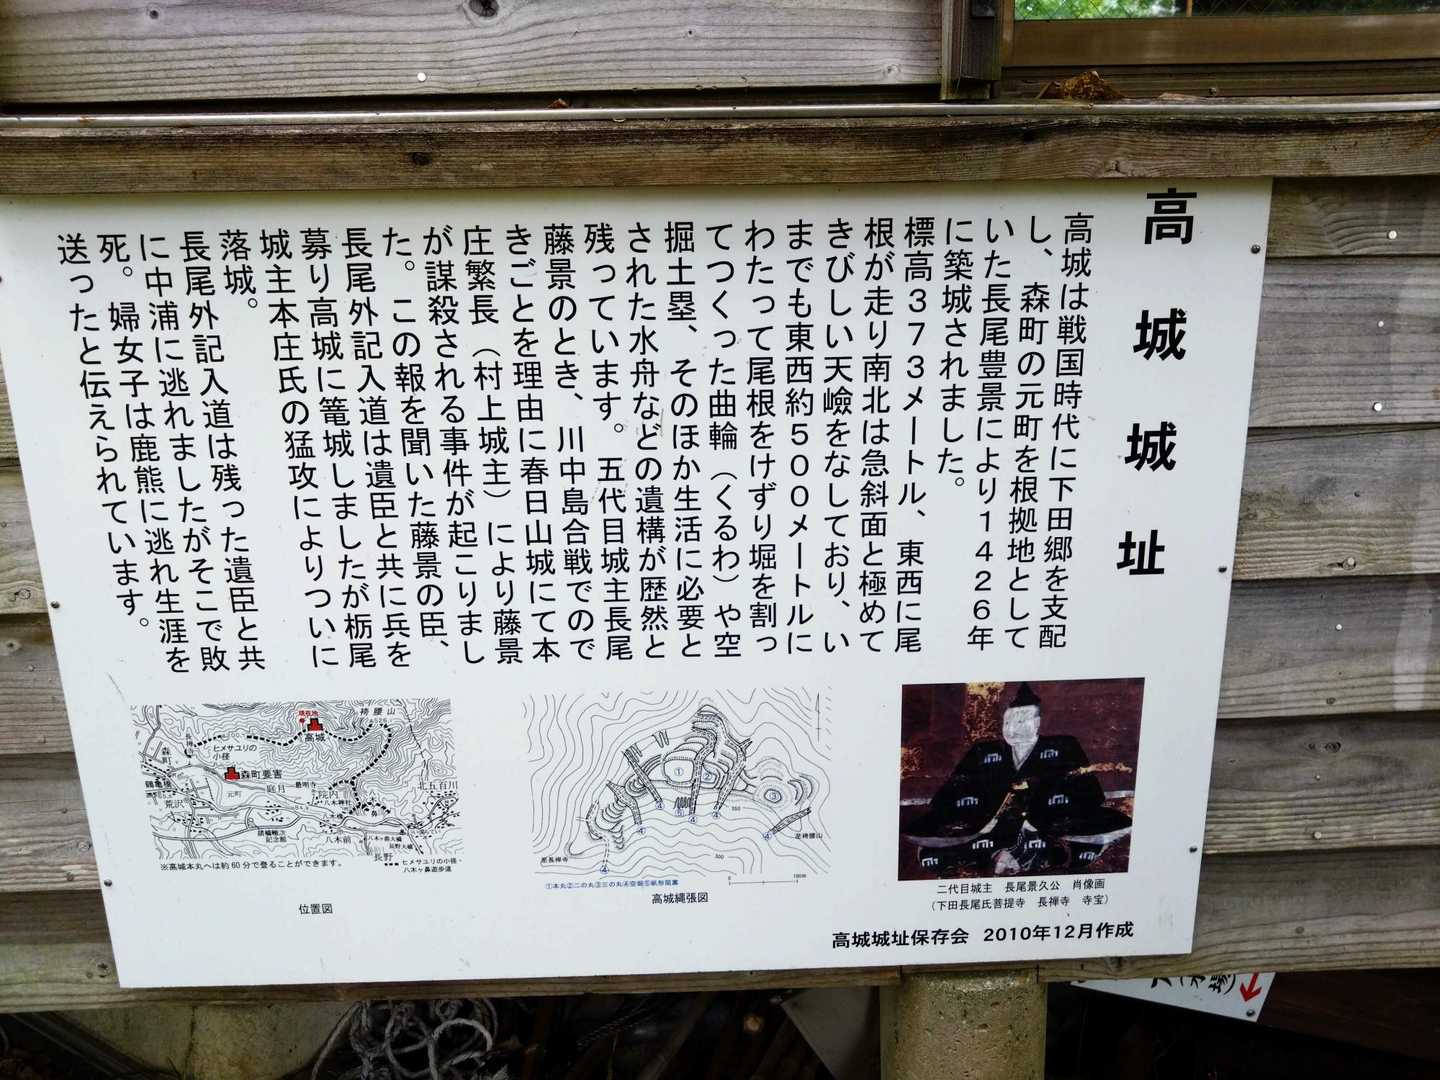 高城城址
高城は戦国時代に下田郷を支配
し、森町の元町を根拠地として
いた長尾豊景により1426年
に築城されました。
標高373メートル、東西に尾
根が走り南北は急斜面と極めて
きびしい天嶮をなしており、い
までも東西約500メートルに
わたって尾根をけずり堀を割っ
てつくった曲輪（くるわ）や空
掘土塁、そのほか生活に必要と
された水舟などの遺構が歴然と
残っています。五代目城主長尾
藤景のとき、川中島合戦でので
きごとを理由に春日山城にて本
庄繁長（村上城主）により藤景
が謀殺される事件が起こりまし
た。この報を聞いた藤景の臣、
長尾外記入道は遺臣と共に兵を
募り高城に篭城しましたが栃尾
城主本庄氏の猛攻によりついに
落城。
長尾外記入道は残った遺臣と共
に中浦に逃れましたがそこで敗
死。婦女子は鹿熊に逃れ生涯を
送ったと伝えられています。
現在地
高城
袴腰山
ヒメサユリの
小径
森町
森町要害
元町
庭月
最明寺
院内
八木神社
鶴亀橋
荒沢
諸橋轍次
記念館
八木前
八木ヶ鼻
北五百川
長野
※高城本丸へは約60分で登ることができます。
ヒメサユリの小径・
八木ヶ鼻遊歩道
位置図
①
②
③
④
④
④
④
④
④
⑤
350
300
至長禅寺
至袴腰山
①本丸②二の丸③三の丸④空堀⑤畝形阻塞
0
100m
高城縄張図
二代目城主 長尾景久公 肖像画
（下田長尾氏菩提寺 長禅寺 寺宝）
高城城址保存会 2010年12月作成